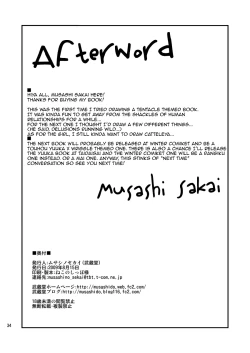 Afterword
■
Hiya all, Musashi Sakai here!
Thanks for buying my book!
This was the first time I tried drawing a tentacle themed book.
It was kinda fun to get away from the shackles of human
relationships for a while...
For the next one I thought I'd draw a few different things...
(he said, delusions running wild...)
As for the girl, I still kinda want to draw Cattleya...
■
The next book will probably be released at Winter Comiket and be a
Touhou Yuuka x Marisa themed one. There is also a chance I'll release
the Yuuka book at Taisaisai and the Winter Comiket one will be a Rangiku
one instead. Or a Mai one. Anyway, this stinks of "next time"
conversation so see you next time!
Musashi Sakai
■奥付■
発行人:ムサシノセカイ(武蔵堂)
発行日:2009年8月15日
印刷・製本:ねこのしっぽ様
武蔵堂ホームページ:http://musashido.web.fc2.com/
武蔵堂ブログ:http://musashido.blog116.fc2.com/
18歳未満の閲覧禁止
無断転載・複製の禁止
34